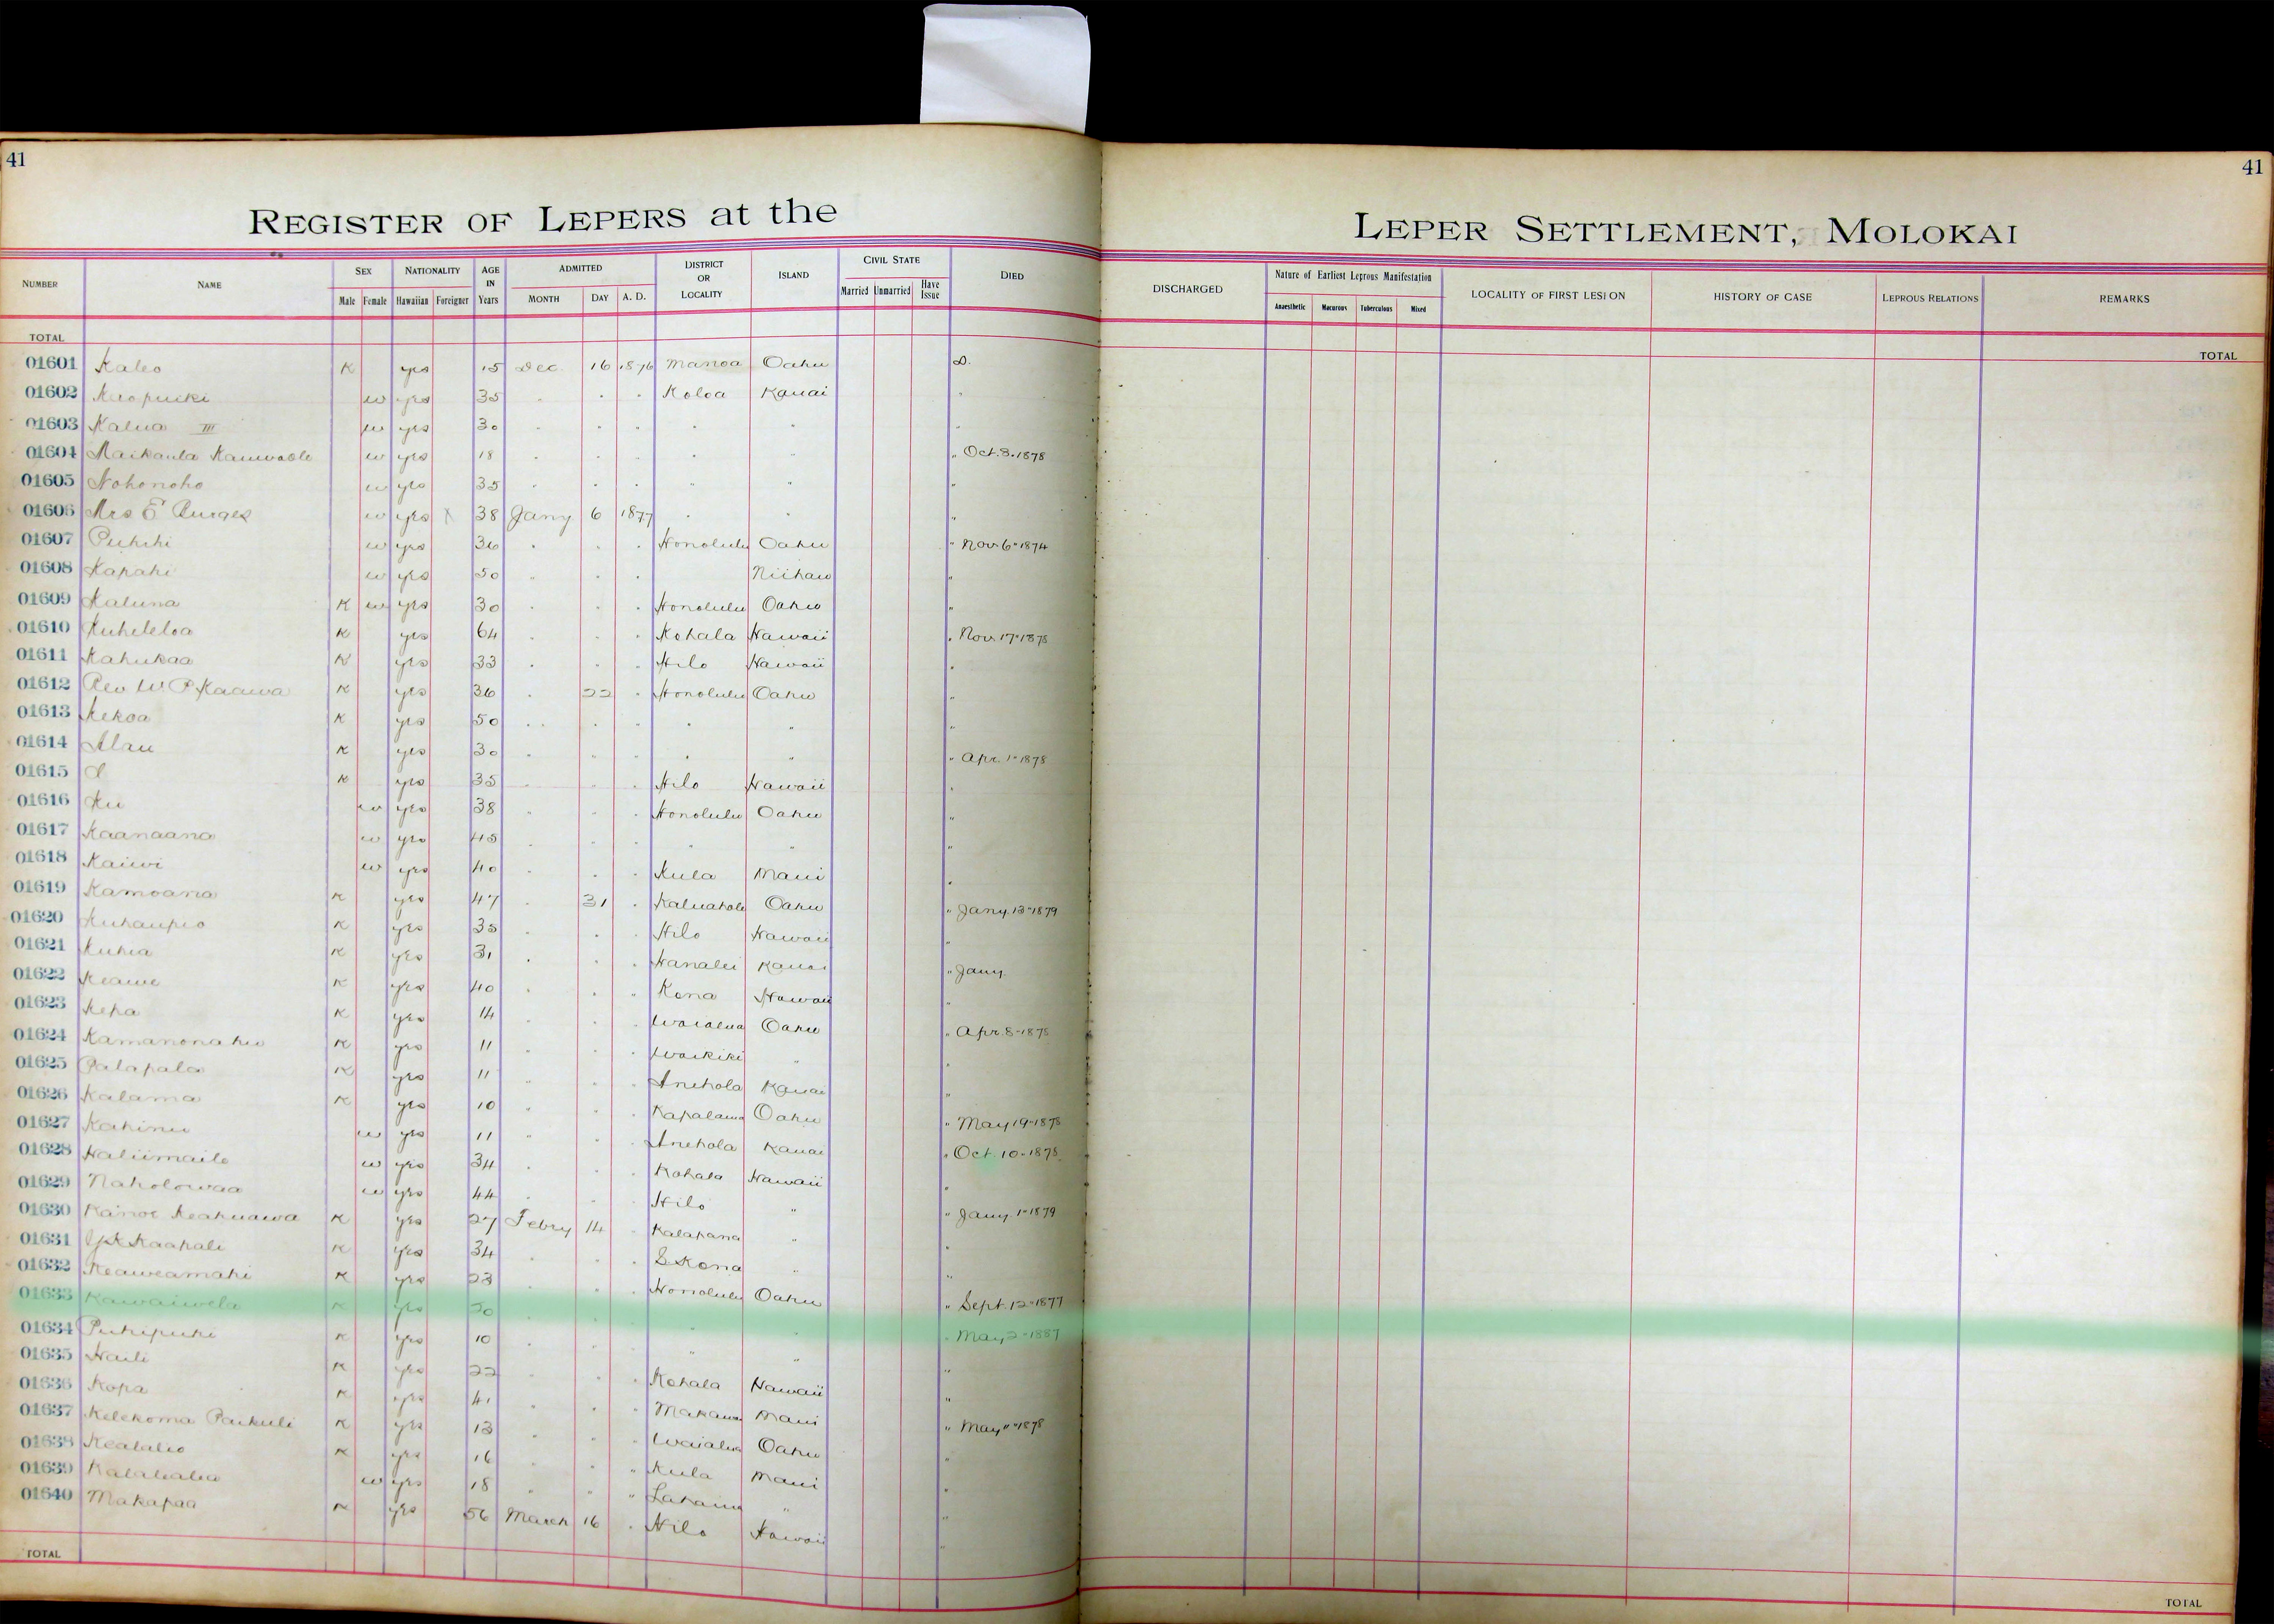 41
41
REGISTER OF LEPERS at the
LEPER SETTLEMENT, MOLOKAI
NUMBER NAME SEX Male Female NATIONALITY Hawaiian Foreigner AGE IN Years ADMITTED MONTH DAY A. D. DISTRICT OR LOCALITY ISLAND CIVIL STATE Married Unmarried Have Issue DIED DISCHARGED Nature of Earliest Leprous Manifestation Anaesthetic Macurous Tuberculous Mixed LOCALITY OF FIRST LESION HISTORY OF CASE LEPROUS RELATIONS REMARKS
TOTAL TOTAL
01601 Kaleo K yes 15 Dec. 16 1876 Manoa Oahu D.
01602 w yes 35 " " " Koloa Kauai "
01603 Kalua III w yes 30 " " " " " "
01604 w yes 18 " " " " " " Oct. 3. 1878
01605 Nohonoho w yes 35 " " " " " "
01606 Mrs E Burges w yes X 38 Jany 6 1877 " " "
01607 Puhihi w yes 36 " " " Honolulu Oahu " Nov 6" 1874
01608 Kapahi w yes 50 " " " Niihau "
01609 Kaluna K w yes 30 " " " Honolulu Oahu "
01610 Kuheleloa K yes 64 " " " Kohala Hawaii " Nov. 17" 1878
01611 Kahukaa K yes 33 " " " Hilo Hawaii "
01612 Rev W. P. Kaawa K yes 36 " 22 " Honolulu Oahu "
01613 Kekoa K yes 50 " " " " " "
01614 Alau K yes 30 " " " " " " Apr. 1" 1878
01615 K yes 35 " " " Hilo Hawaii "
01616 Ku w yes 38 " " " Honolulu Oahu "
01617 Kaanaana w yes 45 " " " " " "
01618 Kaiwi w yes 40 " " " Kula Maui "
01619 Kamoana K yes 47 " 31 " Kaluahole Oahu " Jany. 13" 1879
01620 Kuhaupio K yes 35 " " " Hilo Hawaii "
01621 Kuhia K yes 31 " " " Hanalei Kauai " Jany.
01622 Keawe K yes 40 " " " Kona Hawaii "
01623 Kepa K yes 14 " " " Waialua Oahu " Apr. 8- 1878
01624 K yes 11 " " " Waikiki " "
01625 Palapala K yes 11 " " " Anehola Kauai "
01626 Kalama K yes 10 " " " Kapalama Oahu " May 19- 1878
01627 Kahinu w yes 11 " " " Anehola Kauai " Oct. 10- 1878
01628 Haliimaile w yes 34 " " " Kohala Hawaii "
01629 Naholowaa w yes 44 " " " Hilo " " Jany. 1- 1879
01630 Kanoe Keakuawa K yes 27 Febry 14 " Kalapana " "
01631 Kaapale K yes 34 " " " S Kona " "
01632 Keaweamahi K yes 23 " " " Honolulu Oahu " Sept. 12- 1877
01633 Kawaiwela K yes 50 " " " " " " May 2- 1887
01634 Puhipuhi K yes 10 " " " " " "
01635 Haili K yes 22 " " " Kohala Hawaii "
01636 Kopa K yes 41 " " " Makawao Maui " May 11- 1878
01637 Kelekoma Paikuli K yes 13 " " " Waialua Oahu "
01638 Kealalio K yes 16 " " " Kula Maui "
01639 Kalalialia w yes 18 " " " Lahaina " "
01640 Makapaa K yes 56 March 16 " Hilo Hawaii "
TOTAL TOTAL